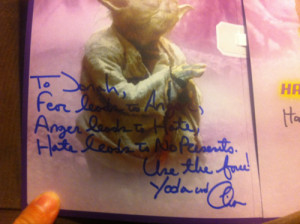 To Jonah,
Fear leads to Anger,
Anger leads to Hate,
Hate leads to No Presents.
Use the force!
Yoda and
HA
Ha